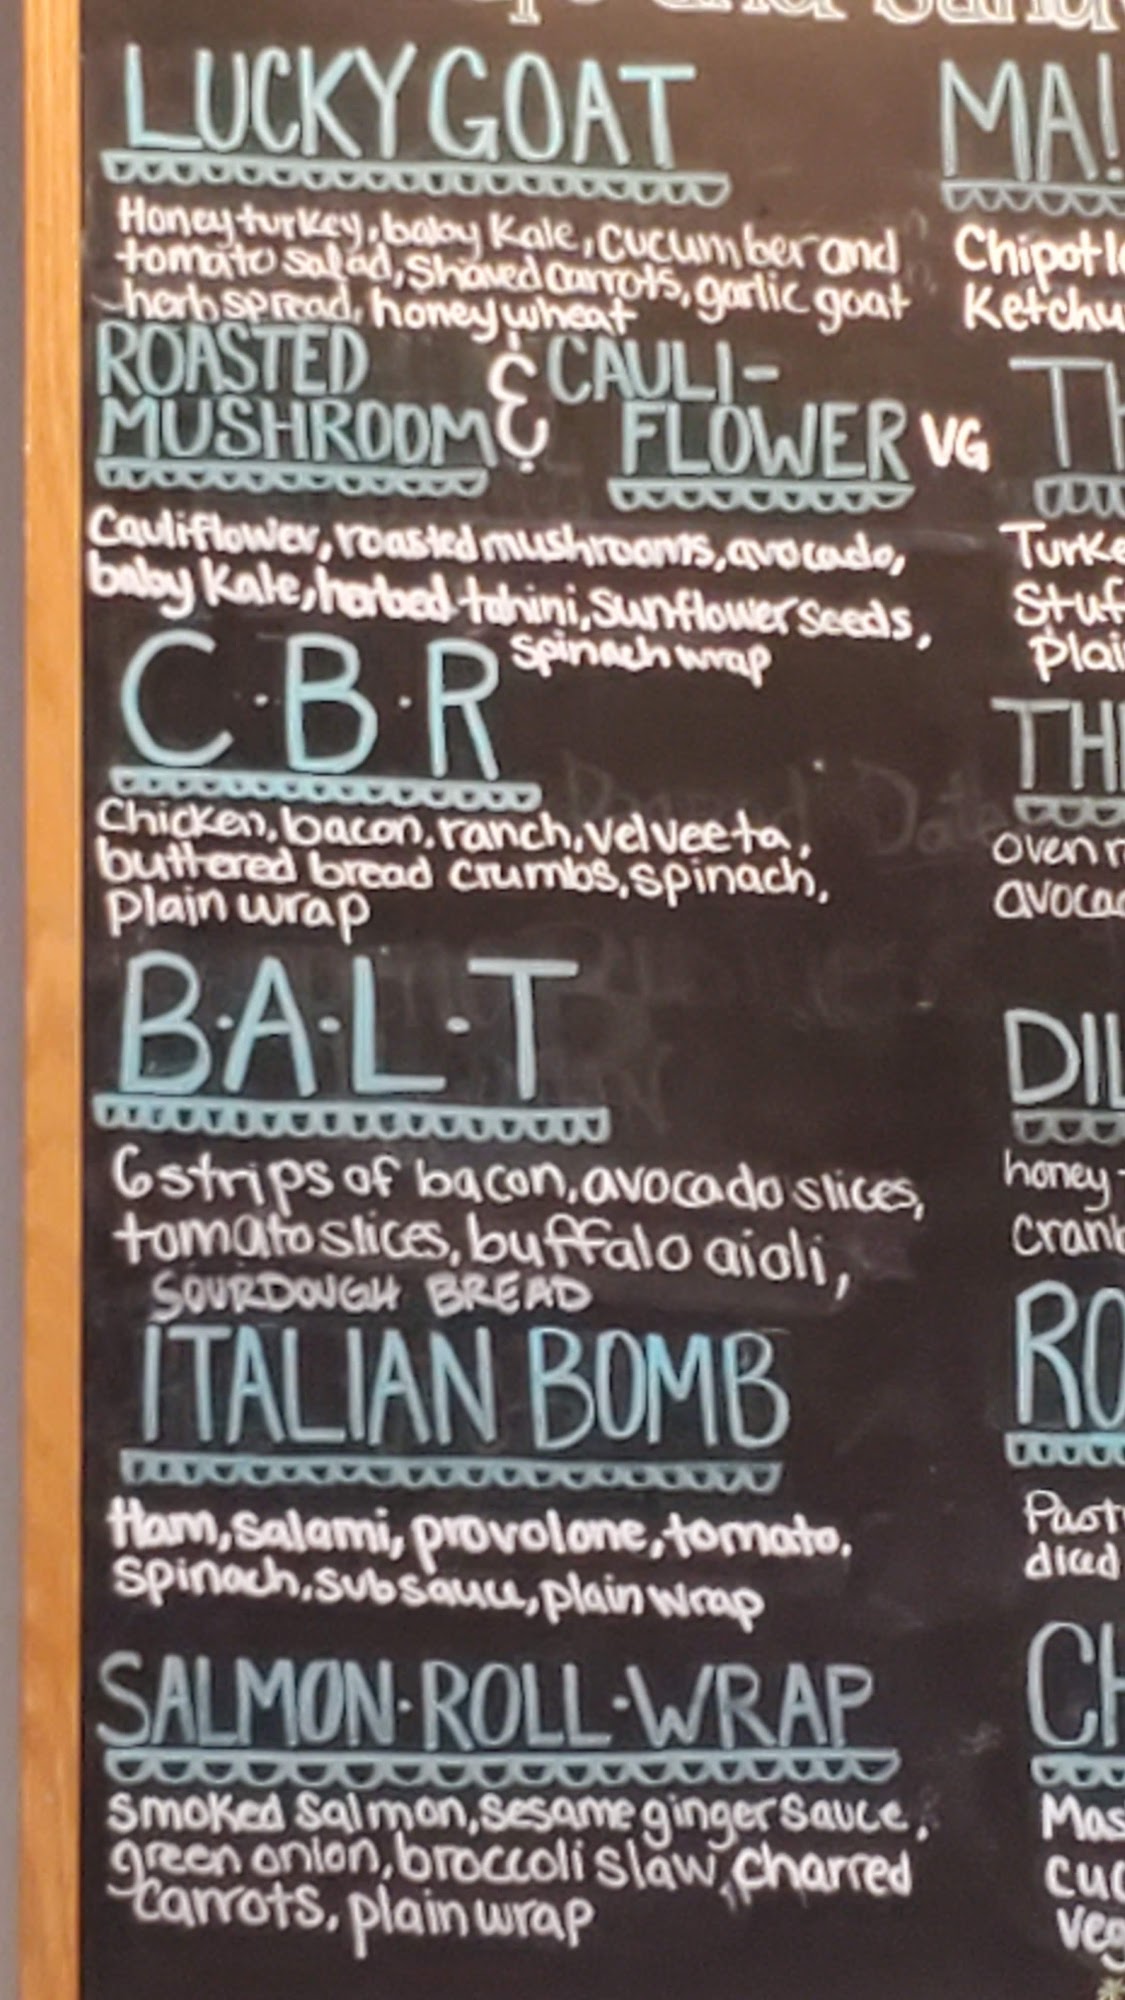 LUCKY GOAT
Honey turkey, baby Kale, cucumber and
tomato salad, Shaved carrots, garlic goat
herb spread, honey wheat
ROASTED
MUSHROOM & CAULI-
FLOWER VG
Cauliflower, roasted mushrooms, avocado,
baby Kale, herbed tahini, Sunflower Seeds,
Spinach wrap
C·B·R
Chicken, bacon, ranch, velveeta,
buttered bread crumbs, spinach,
plain wrap
B·A·L·T
6 strips of bacon, avocado slices,
tomato slices, buffalo aioli,
SOURDOUGH BREAD
ITALIAN BOMB
Ham, salami, provolone, tomato,
Spinach, sub sauce, plain wrap
SALMON·ROLL·WRAP
Smoked Salmon, sesame ginger Sauce,
green onion, broccoli slaw, charred
carrots, plain wrap
MA!
Chipotl
Ketchu
TH
Turke
Stuf
plai
TH
oven r
avocad
DIL
honey
cranb
RO
Past
diced
CH
Mas
cuc
veg